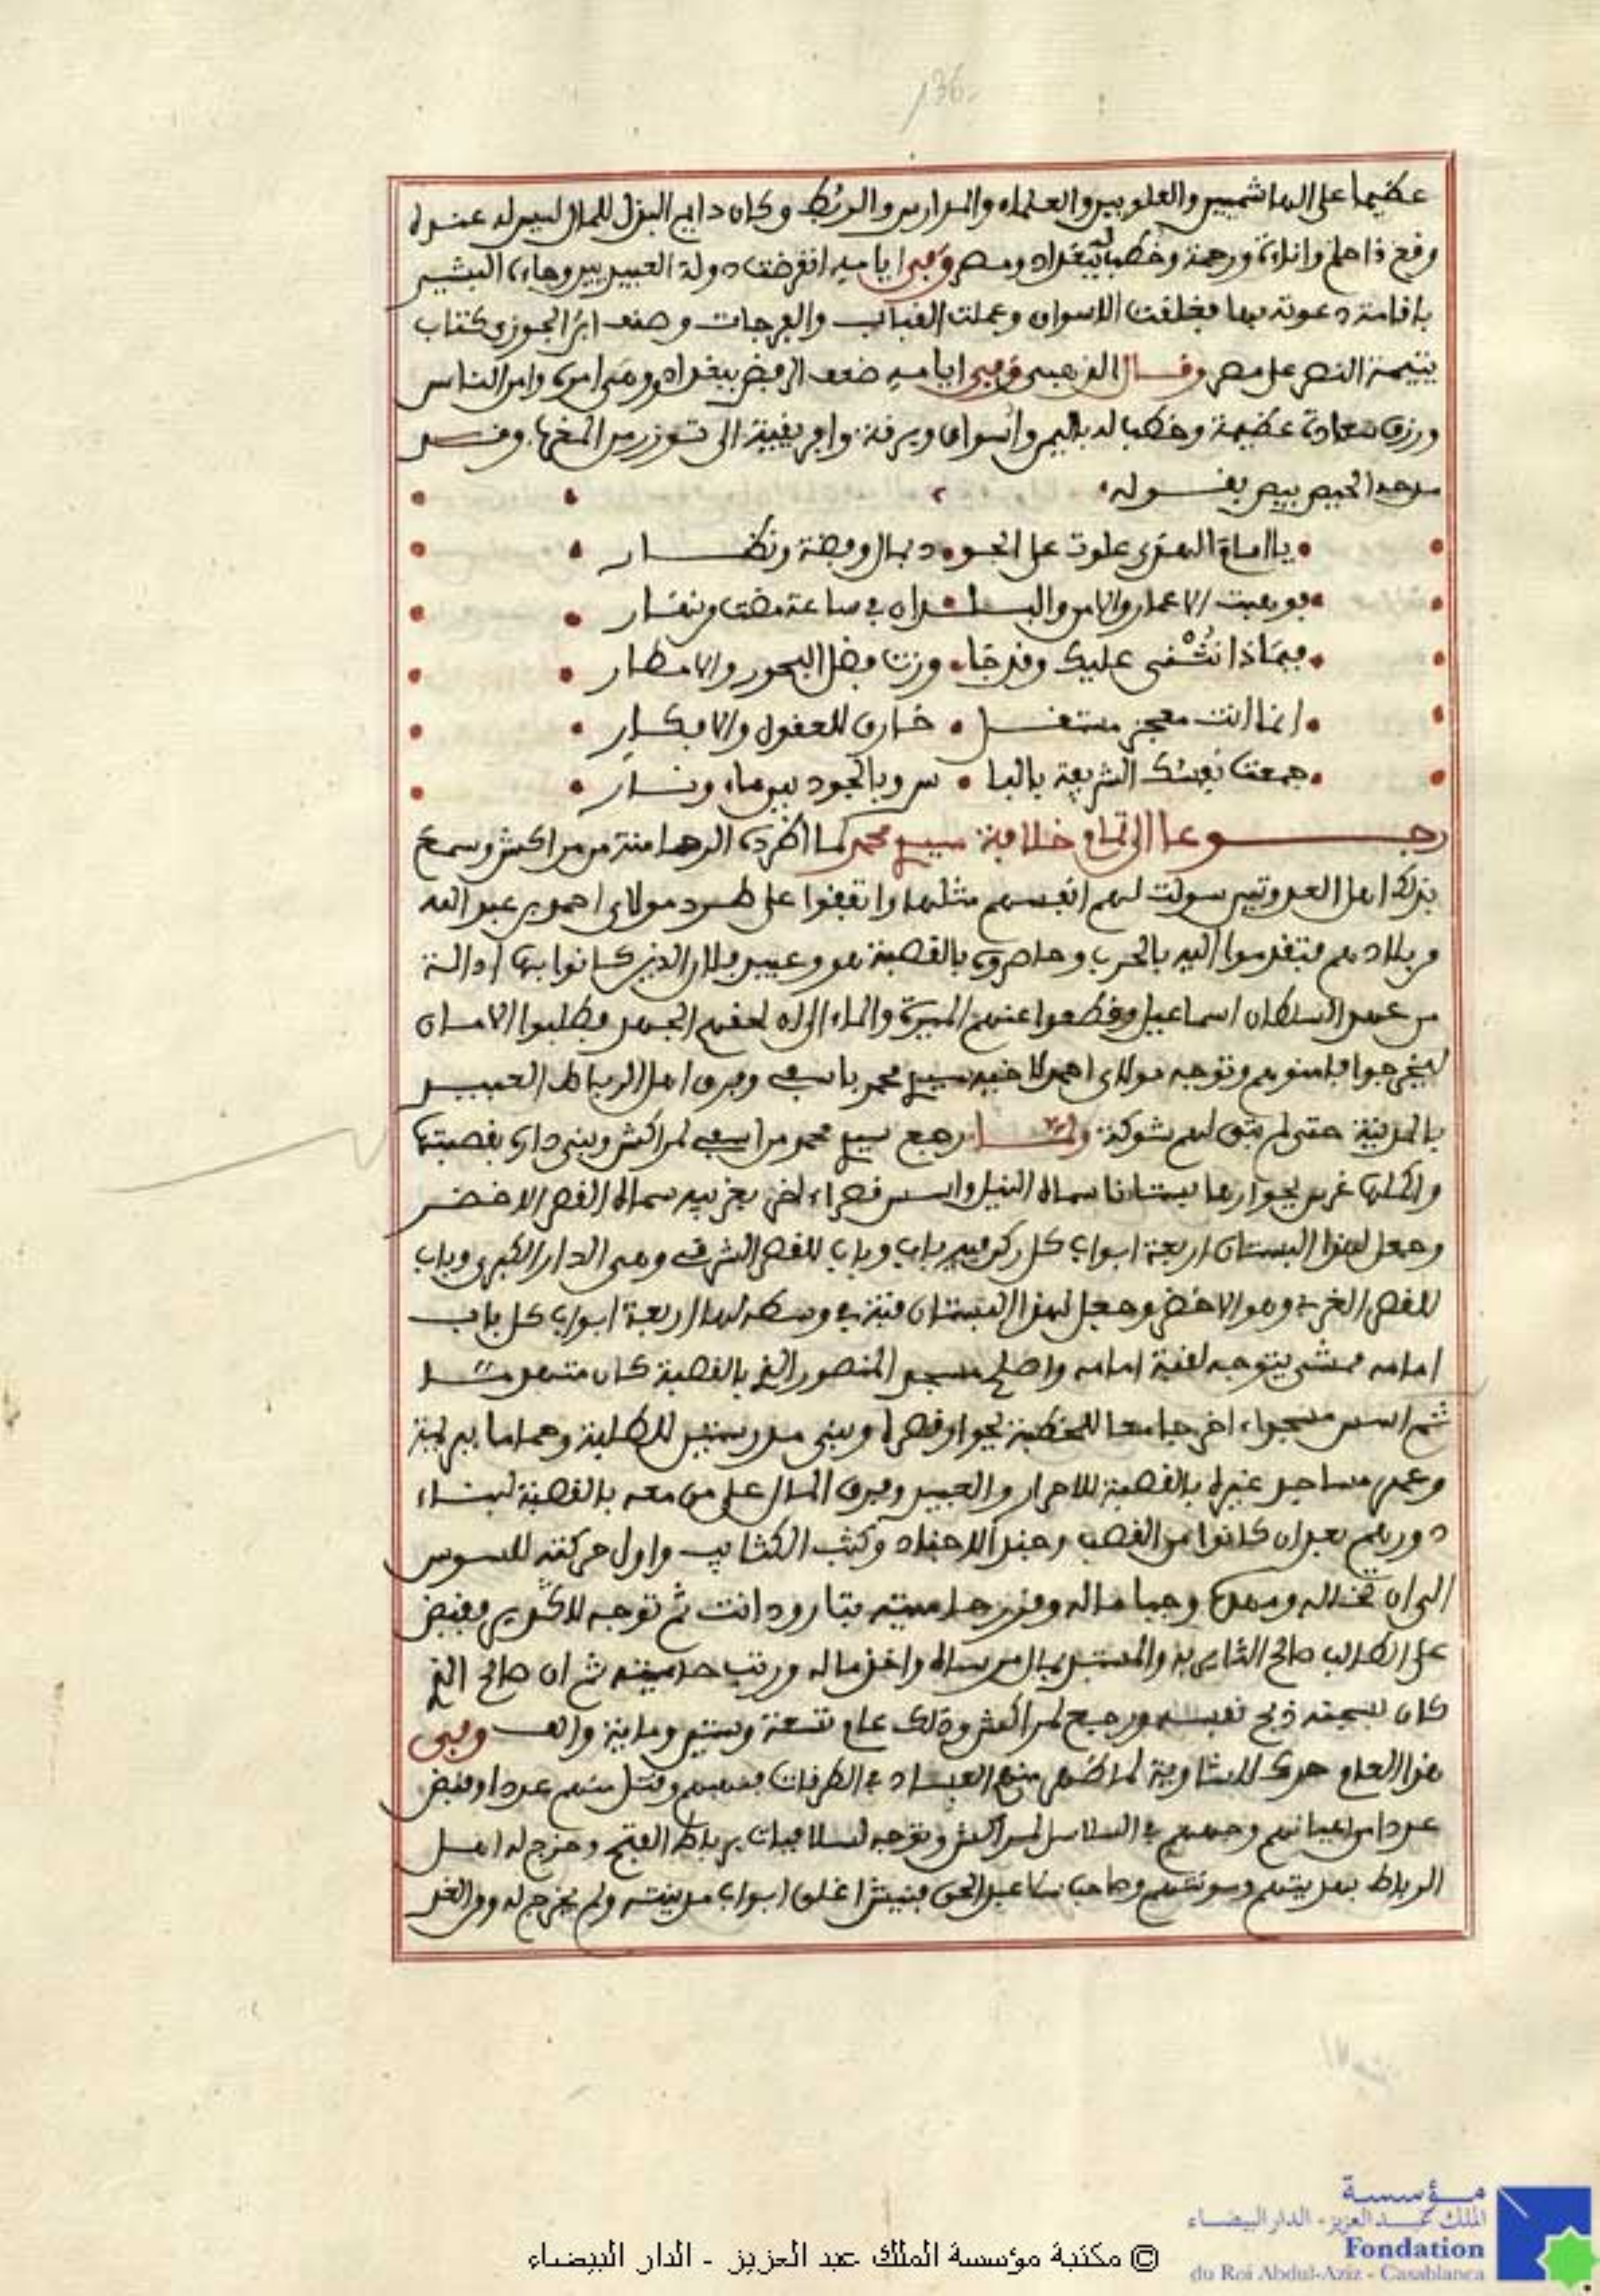 136
عظيما على الهاشميين والعلويين والعلماء والمدارس والربط وكان دايم البذل للمال ليس له عنده
وقع ذا حلم واناءة ورحمة وخطب له ببغداد ومصر وفي ايامه انقرضت دولة العبيديين وجاءه البشير
باقامة دعوته بها فغلقت الاسواق وعملت القباب والفرجات وصنف ابن الجوزي كتاب
يتيمة النصر على مصر وقال الذهبي وفي ايامه ضعف الرفض ببغداد ووهى امره وامن الناس
ورزق سعادة عظيمة وخطب له باليمن واسوان وبرقة وافريقية الى توزر من المغرب وقد
مدحه الحيص بيص بقوله
يا امام الهدى علوت على الجو د بمال وفضة ونضار
فوهبت الاعمار والامن والبلدان في ساعة مضت من نهار
فبماذا نثني عليك وقد جا وزت فضل البحور والامطار
انما انت معجز مستقل خارق للعقول والافكار
جمعت نفسك الشريفة بالبا س وبالجود بين ماء ونار
رجوعا الى تمام خلافة سيدي محمد كما اطرده الرحامنة من مراكش وسمع
بذلك اهل العدوتين سولت لهم انفسهم مثلها واتفقوا على طرد مولاي احمد بن عبد الله
من بلادهم فتقدموا اليه بالحرب وحاصروه بالقصبة هو وعبيد فلان الذين كانوا بها ادالة
من عهد السلطان اسماعيل وقطعوا عنهم الميرة والماء الى ان لحقهم الجهد وطلبوا الامان
ليخرجوا فامنوهم وتوجه مولاي احمد لاخيه سيدي محمد باسفي وفرق اهل الرباط العبيد
بالمدينة حتى لم تبق لهم شوكة ولما رجع سيدي محمد من اسفي لمراكش وبنى داره بقصبتها
واكملها غرس بجوارها بستانا سماه النيل واسس قصراء اخر بغربيه سماه القصر الاخضر
وجعل لهذا البستان اربعة ابواب كل ركن فيه باب وباب للقصر الشرقي وهي الدار الكبرى وباب
للقصر الغربي وهو الاخضر وجعل لهذا البستان قبة في وسطه لها اربعة ابواب كل باب
امامه ممشى يتوجه لقبة امامه واصلح مسجد المنصور الذي بالقصبة كان متهدما
ثم اسس مسجداء اخر جامعا للخطبة بجوار قصره وبنى مدرستين للطلبة وحماما
وعمر مساجد غيره بالقصبة للاحرار والعبيد وفرق المال على من معه بالقصبة لبناء
دورهم بعد ان كانوا من القصب وجند الاجناد وكتب الكتائب واول حركته للسوس
الى ان وجبا ماله وقرر حاميته بتارودانت ثم توجه لاكدير فقبض
على الطالب صالح الثاير به والمستبد بمال مرساه واخذ ماله ورتب حاميته ثم ان صالح الذي
كان بسجنه ذبح نفسه ورجع لمراكش وذلك عام تسعة وستين وماية والف وفي
هذا العام حرك للشاوية لما ظهر منهم الفساد في الطرقات فنهبهم وقتل منهم عددا وقبض
عددا من اعيانهم وجعلهم في السلاسل لمراكش وتوجه لسلا فبات برباط الفتح وخرج له اهل
الرباط بهديتهم ومونتهم وصاحب سلا عبد الحق فنيش اغلق ابواب مدينته ولم يخرج له ومن الغد
مؤسسة
الملك عبد العزيز - الدار البيضاء
Fondation
du Roi Abdul-Aziz - Casablanca
© مكتبة مؤسسة الملك عبد العزيز - الدار البيضاء